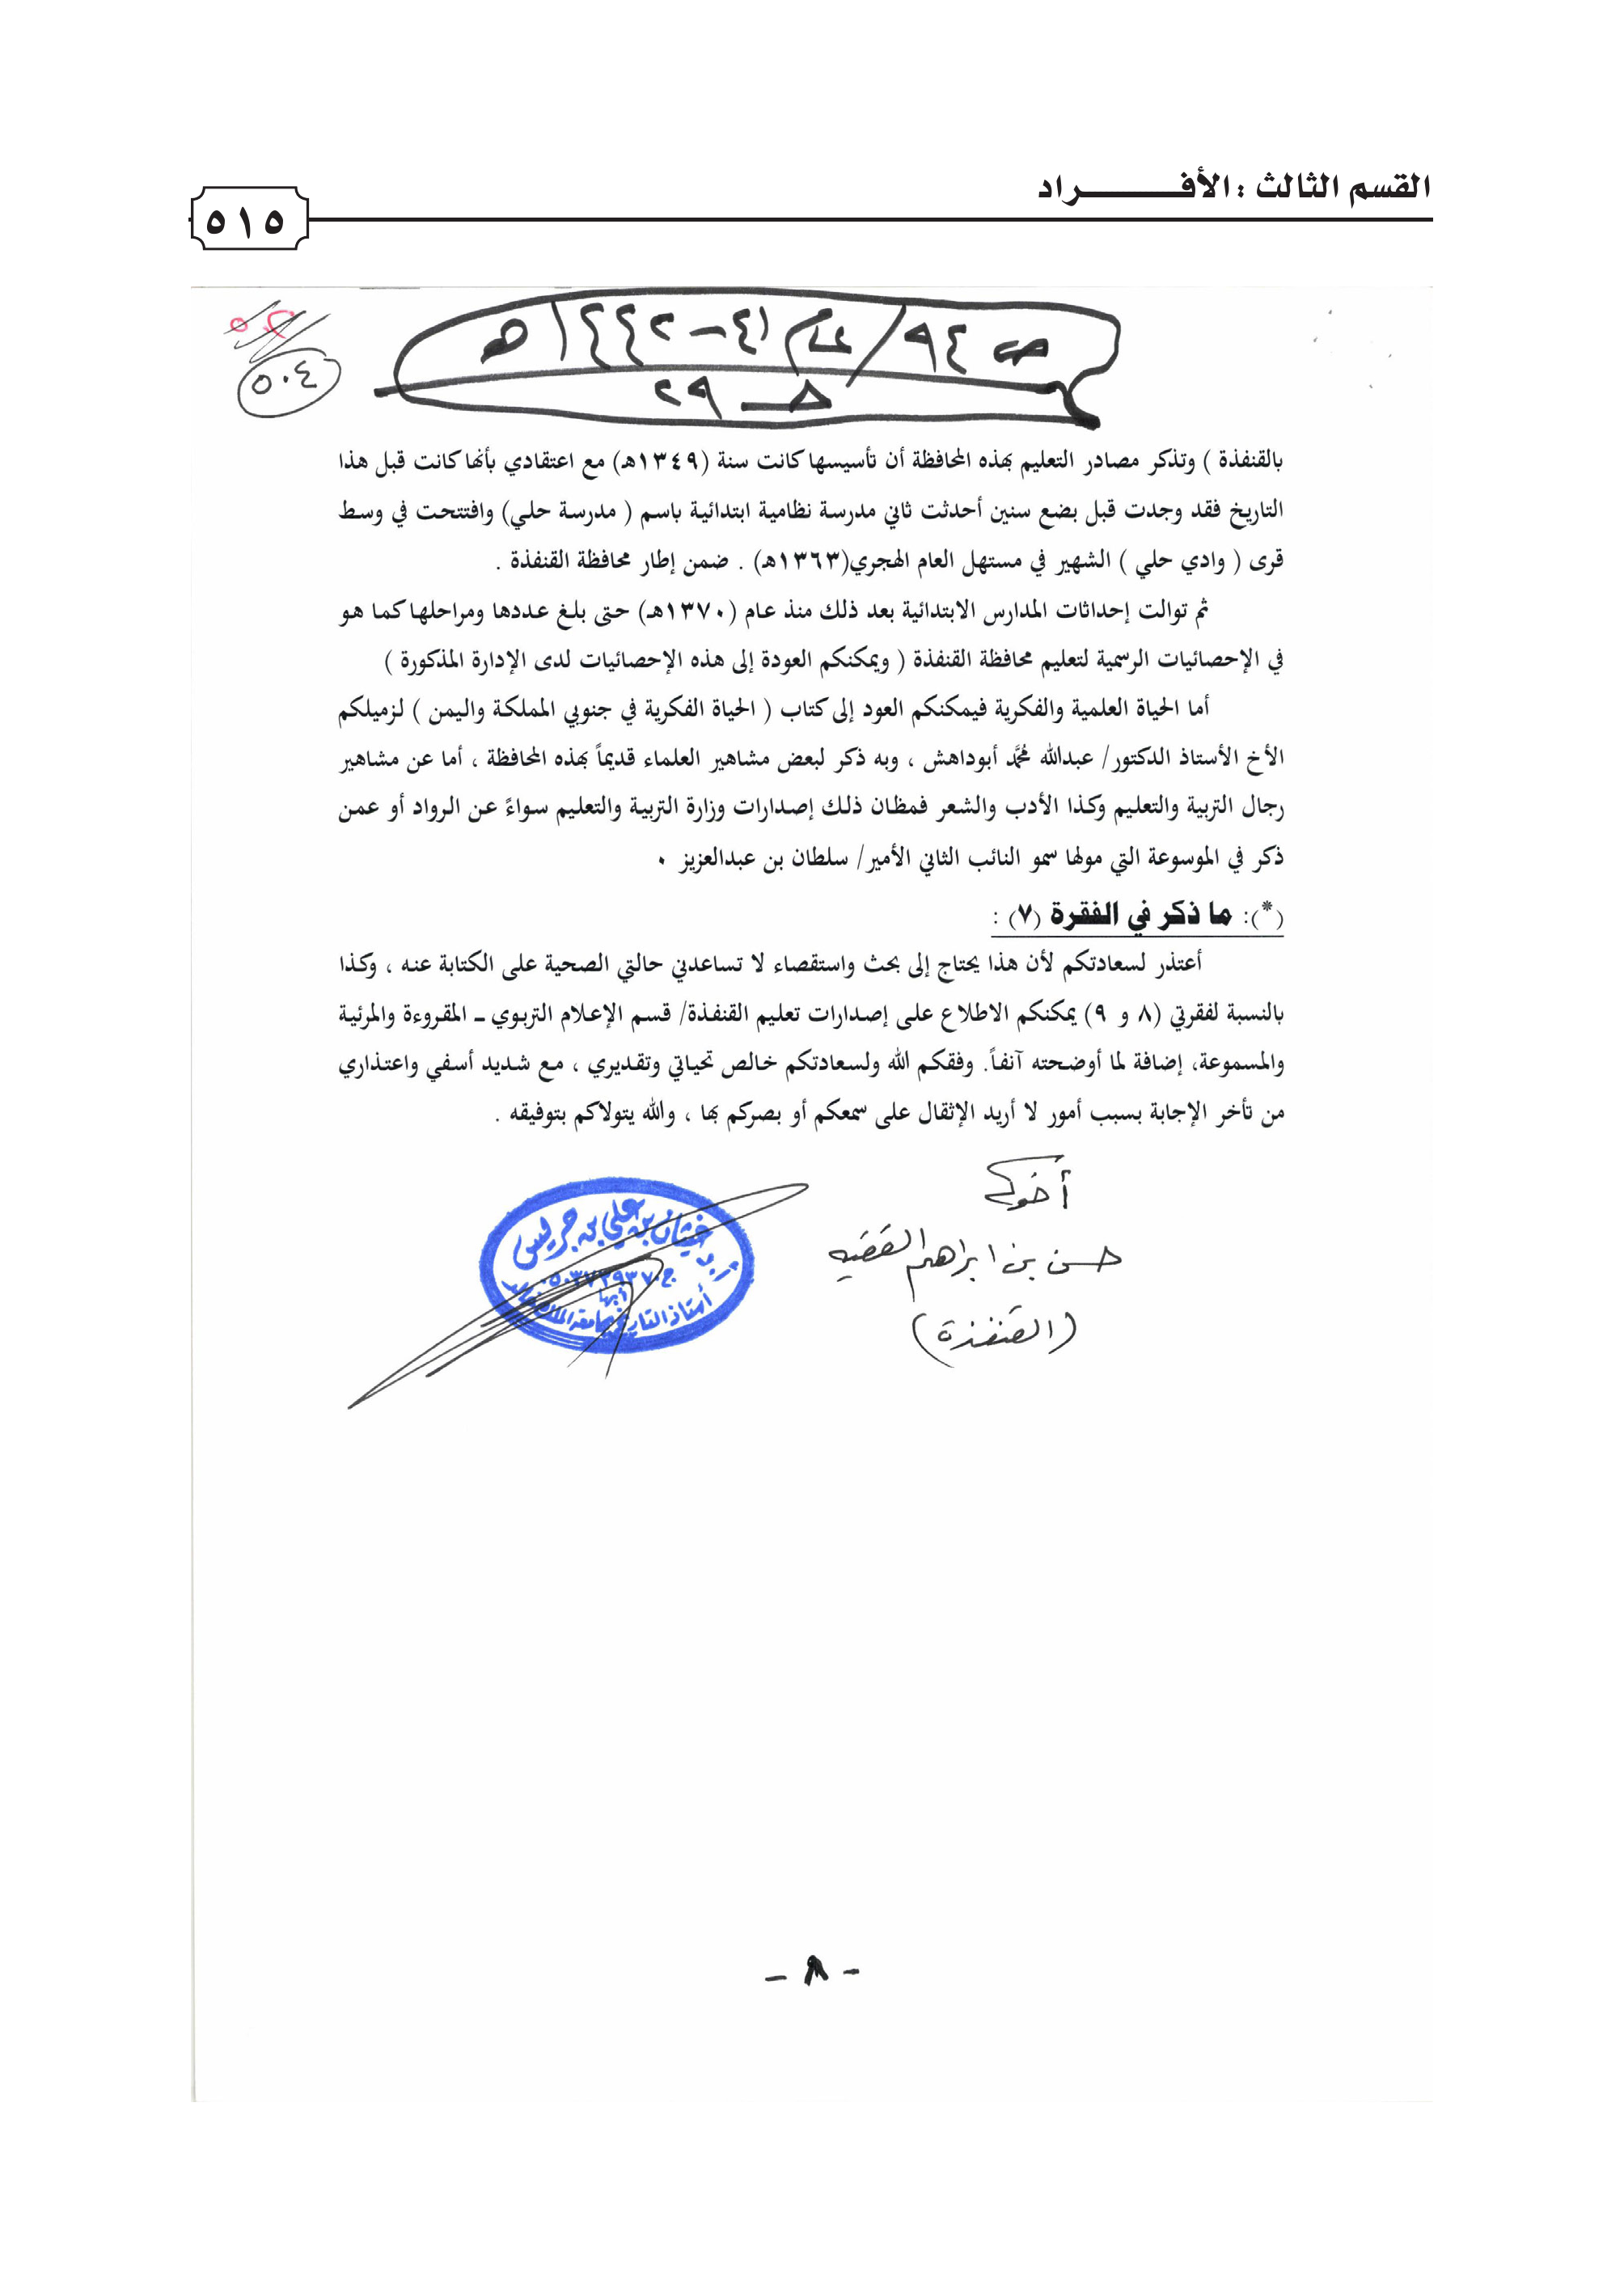 القسم الثالث : الأفـــــــراد
٥١٥
ص ٩٤ / عام ٤١ – ١٤٤٢هـ
٥٠٤
حـ ٢٩
بالقنفذة ) وتذكر مصادر التعليم بهذه المحافظة أن تأسيسها كانت سنة (١٣٤٩هـ) مع اعتقادي بأنها كانت قبل هذا
التاريخ فقد وجدت قبل بضع سنين أحدثت ثاني مدرسة نظامية ابتدائية باسم ( مدرسة حلي) وافتتحت في وسط
قرى ( وادي حلي ) الشهير في مستهل العام الهجري(١٣٦٣هـ) . ضمن إطار محافظة القنفذة .
ثم توالت إحداثات المدارس الابتدائية بعد ذلك منذ عام (١٣٧٠هـ) حتى بلغ عددها ومراحلها كما هو
في الإحصائيات الرسمية لتعليم محافظة القنفذة ( ويمكنكم العودة إلى هذه الإحصائيات لدى الإدارة المذكورة )
أما الحياة العلمية والفكرية فيمكنكم العود إلى كتاب ( الحياة الفكرية في جنوبي المملكة واليمن ) لزميلكم
الأخ الأستاذ الدكتور/ عبدالله محمَّد أبوداهش ، وبه ذكر لبعض مشاهير العلماء قديماً بهذه المحافظة ، أما عن مشاهير
رجال التربية والتعليم وكذا الأدب والشعر فمظان ذلك إصدارات وزارة التربية والتعليم سواءً عن الرواد أو عمن
ذكر في الموسوعة التي مولها سمو النائب الثاني الأمير/ سلطان بن عبدالعزيز ٠
(*): ما ذكر في الفقرة (٧) :
أعتذر لسعادتكم لأن هذا يحتاج إلى بحث واستقصاء لا تساعدني حالتي الصحية على الكتابة عنه ، وكذا
بالنسبة لفقرتي (٨ و ٩) يمكنكم الاطلاع على إصدارات تعليم القنفذة/ قسم الإعلام التربوي ــ المقروءة والمرئية
والمسموعة، إضافة لما أوضحته آنفاً. وفقكم الله ولسعادتكم خالص تحياتي وتقديري ، مع شديد أسفي واعتذاري
من تأخر الإجابة بسبب أمور لا أريد الإثقال على سمعكم أو بصركم بها ، والله يتولاكم بتوفيقه .
أخوكم
حسن بن ابراهيم الفقيه
(القنفذة)
أ.د غيثان بن علي بن جريس
أبها
أستاذ التاريخ بجامعة الملك خالد
- ٨ -